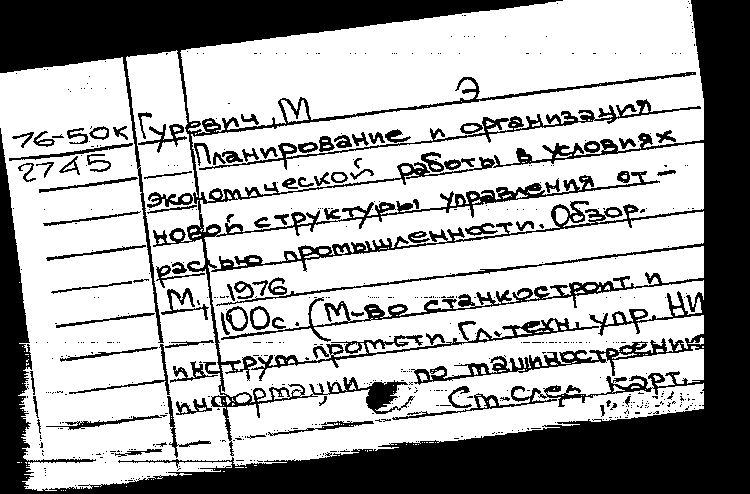 Э
76-50к Гуревич, М
2745 Планирование и организация
экономической работы в условиях
новой структуры управления от-
раслью промышленности. Обзор.
М., 1976.
100с. (М-во станкостроит. и
инструм. пром-сти. Гл. техн. упр. НИ
информации по машиностроению
Ст. след. карт.